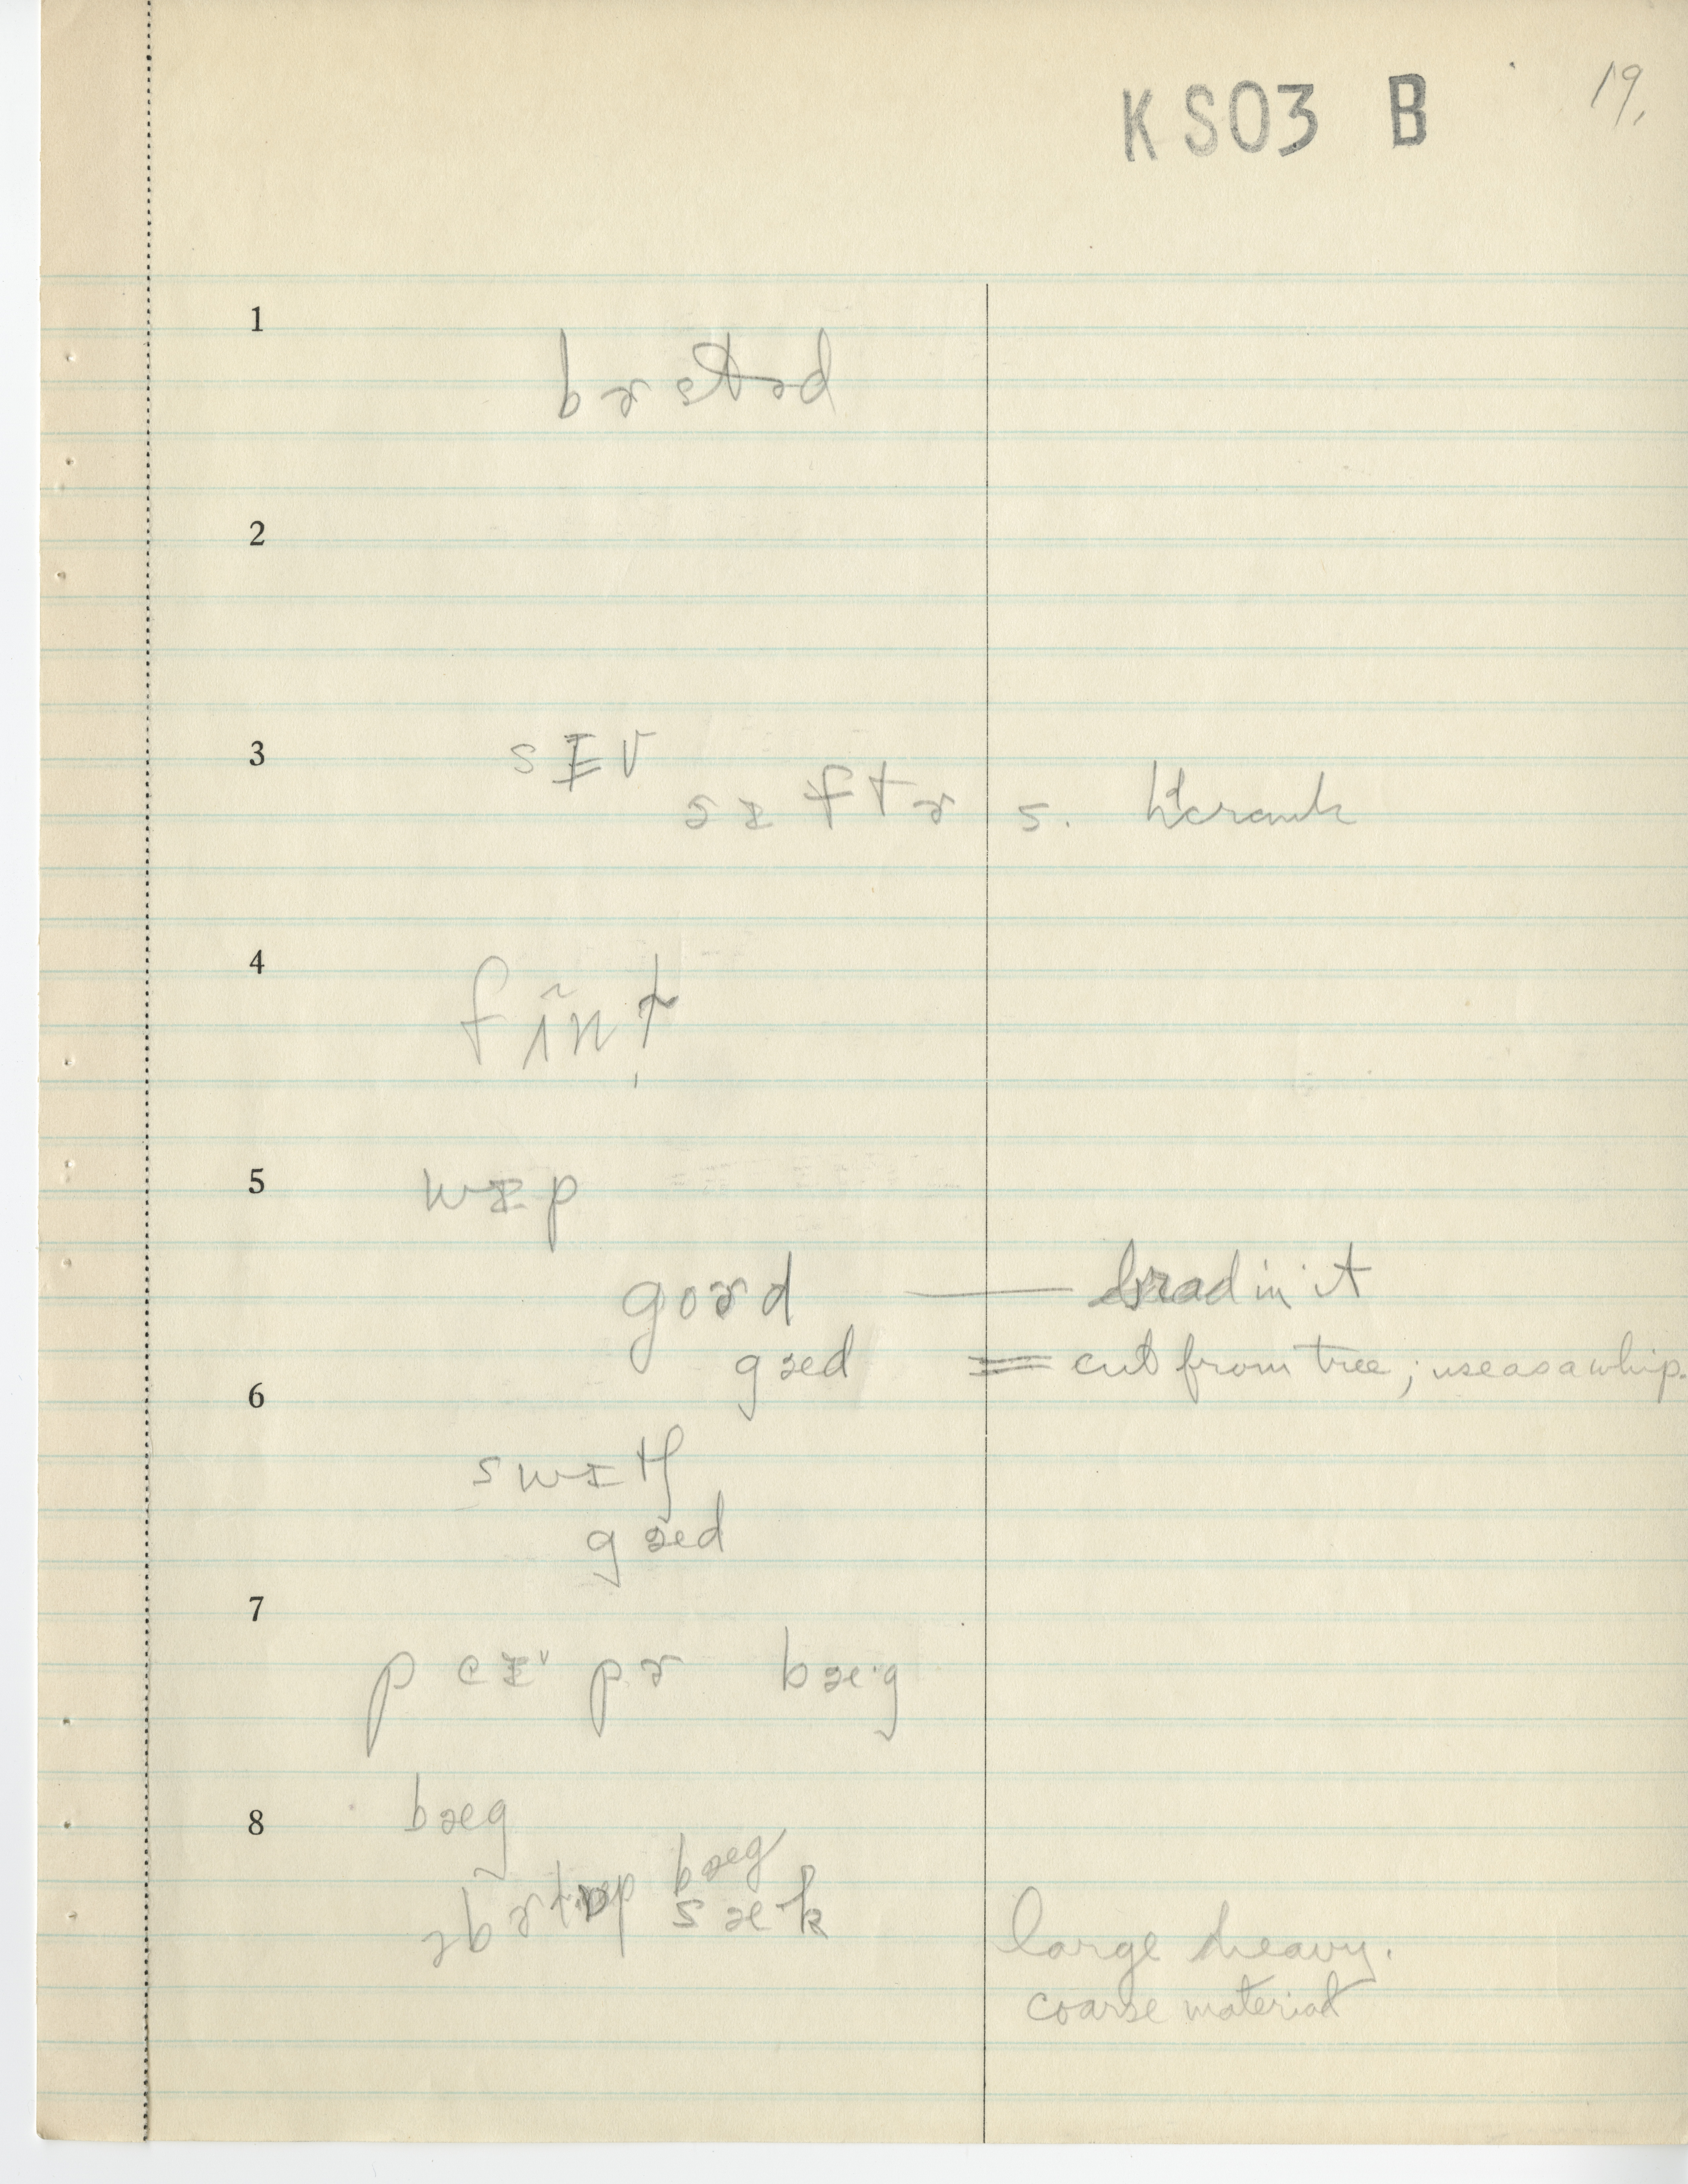 KS03 B 19.
1
2
3
sɪv
sɪftɚ s. to crank
4
fĩnt
5
wɪp
goɚd — brad in it
gæd = cut from tree; use as a whip.
6
swɪtʃ
gæd
7
pɚ bæ·g
8
bæg
bæg
sæk
large heavy.
coarse material